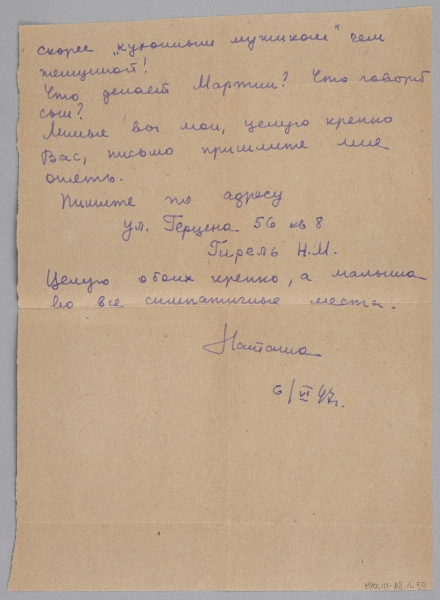 скорее „кухонным мужиком" чем
женщиной!
Что делает Мартин? Что говорит
сын?
Милые вы мои, целую крепко
Вас, письмо пришлите мне
опять.
Пишите по адресу
ул. Герцена 56 кв 8
Гирель Н.М.
Целую обоих крепко, а малыша
во все симпатичные места.
Наташа
6/VI 47г.